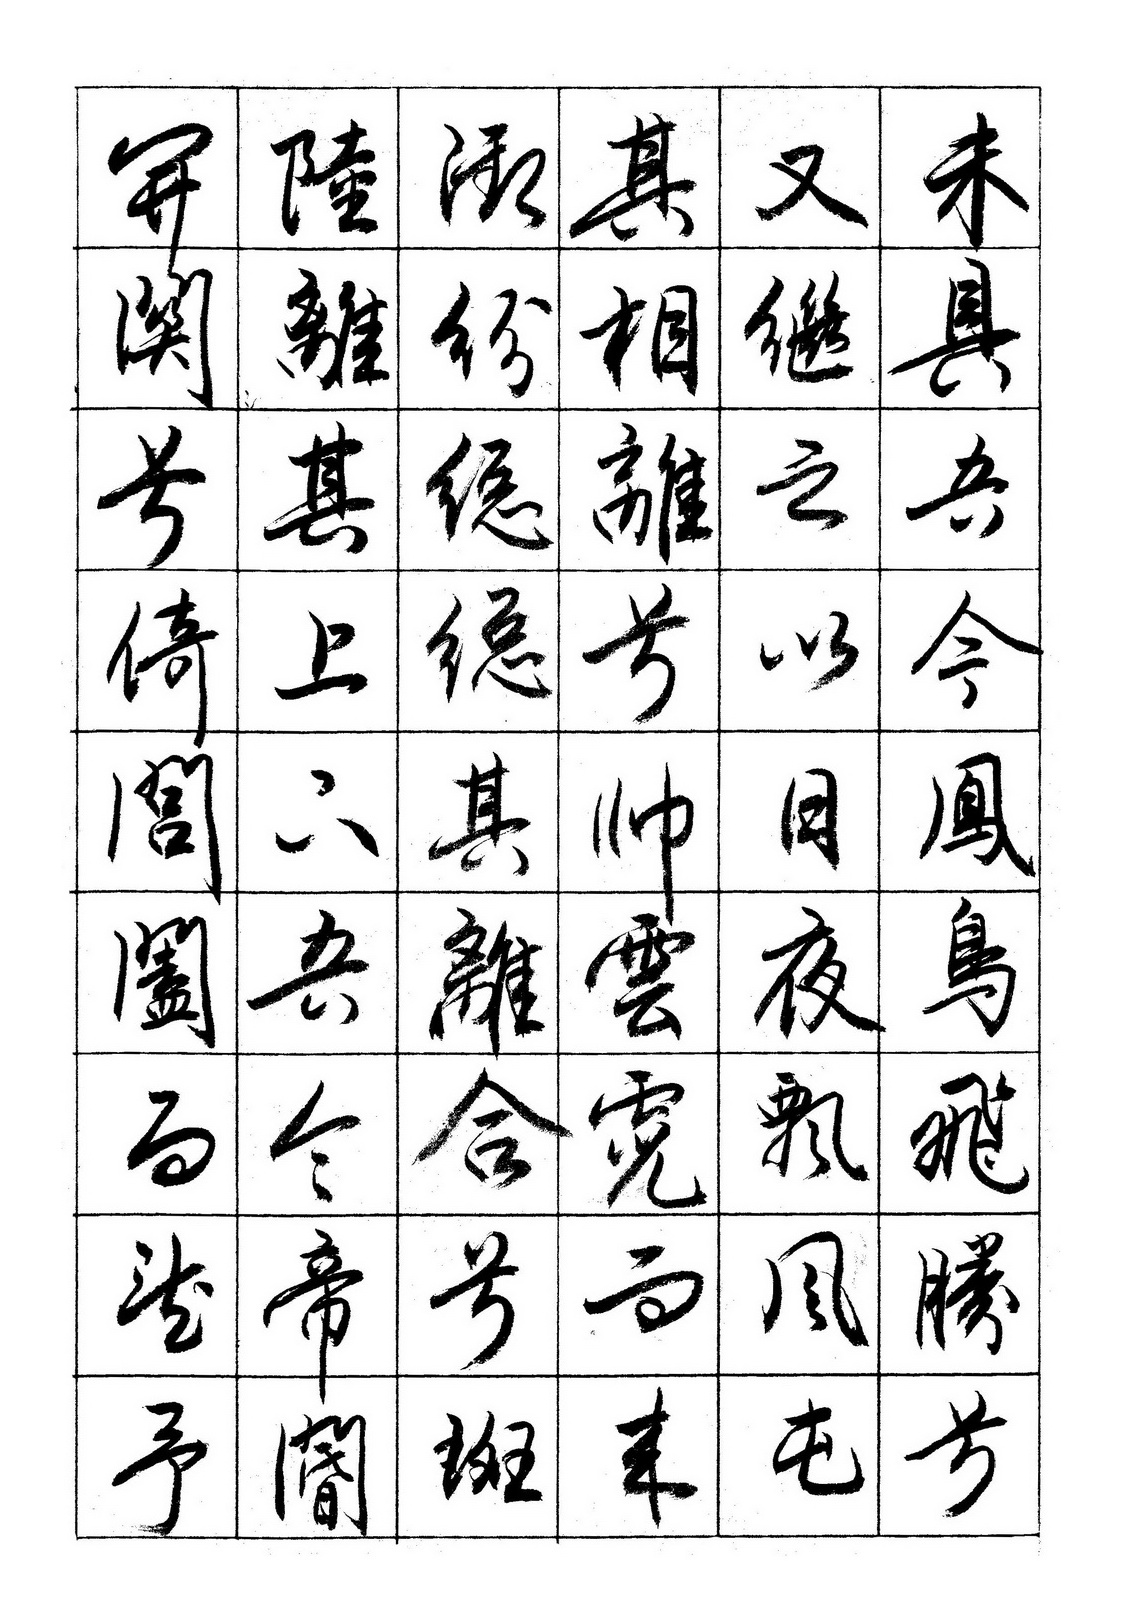 未具吾令鳳鳥飛騰兮
又繼之以日夜飄風屯
其相離兮帥雲霓而來
御紛總總其離合兮斑
陸離其上下吾令帝閽
開關兮倚閶闔而望予